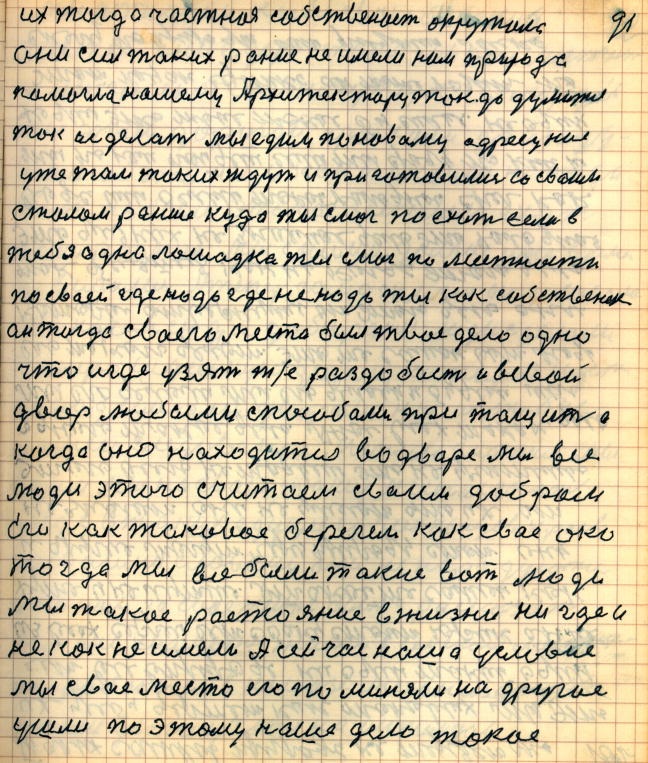 91
их тогда частная собственост окружала
они сил таких рание не имели нам природа
помогла нашему Архитектару ток до думатся
ток и делат мы едим по новаму адресу нас
уже там таких ждут и приготовились со своим
столом ранше куда ты смог поехат если в
тебя одна лошадка ты смог по местности
по сваей где надо где не надо ты как собственик
он тогда сваего места был твое дело одно
что и где узят т/е раздобыст и в свой
двор любыми способами при тащит а
когда оно находится во дваре мы все
люди этого считаем сваим добром
его как таковое берегем как свае око
тогда мы все были такие вот люди
мы такое растояние в жизни ни где и
не как не имели А сейчас наша условие
мы свае место его по миняли на другое
ушли по этому наше дело такое